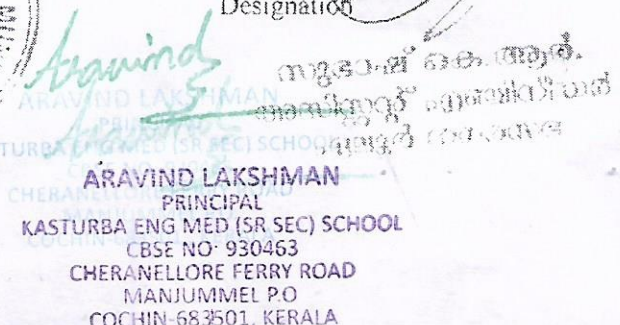 Designation
Aravind
സുഭാഷ് കെ. ആർ.
അസിസ്റ്റന്റ് എഞ്ചിനീയർ
ARAVIND LAKSHMAN
PRINCIPAL
KASTURBA ENG MED (SR SEC) SCHOOL
CBSE NO: 930463
CHERANELLORE FERRY ROAD
MANJUMMEL P.O
COCHIN-683501, KERALA